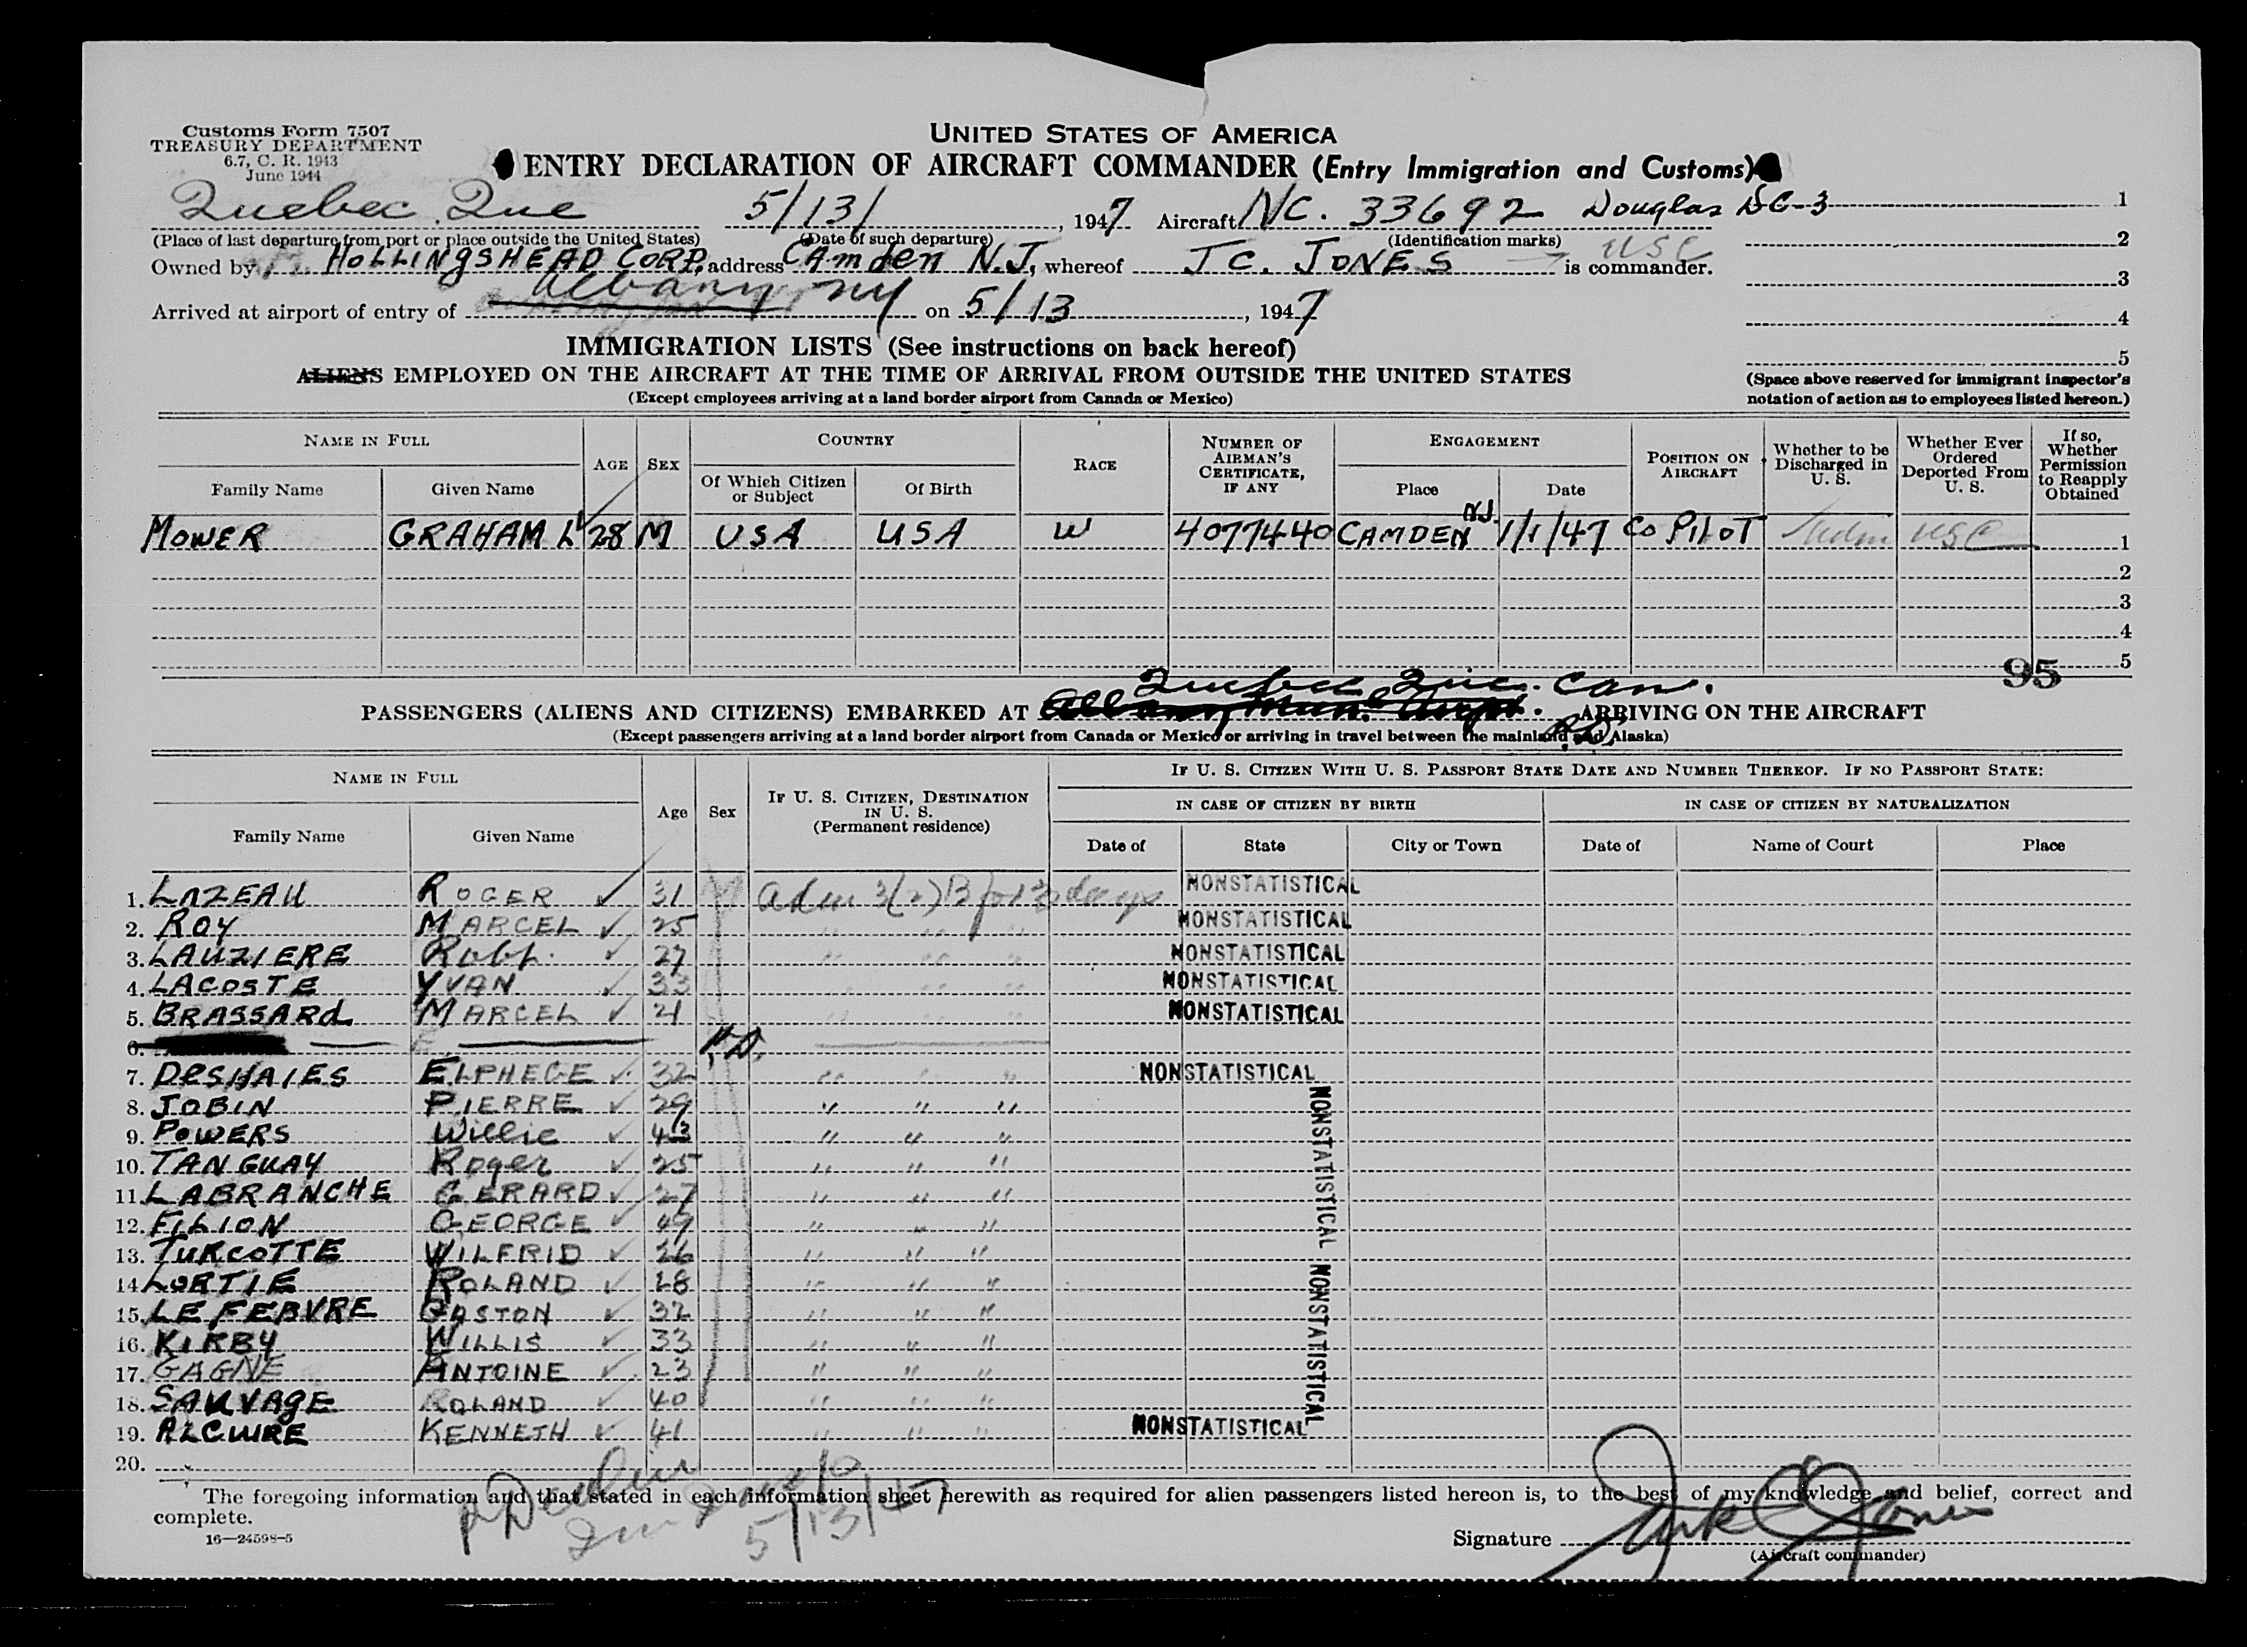 Customs Form 7507
TREASURY DEPARTMENT
6.7, C. R. 1943
June 1944
UNITED STATES OF AMERICA
ENTRY DECLARATION OF AIRCRAFT COMMANDER (Entry Immigration and Customs)
Quebec Que 5/13/, 1947 Aircraft NC. 33692 Douglas DC-3 1
(Place of last departure from port or place outside the United States) (Date of such departure) (Identification marks) 2
USC
Owned by HOLLINGSHEAD CORP, address CAmden N.J, whereof J C. JONES is commander.
3
Albany NY
Arrived at airport of entry of on 5/13, 1947
4
IMMIGRATION LISTS (See instructions on back hereof)
5
ALIENS EMPLOYED ON THE AIRCRAFT AT THE TIME OF ARRIVAL FROM OUTSIDE THE UNITED STATES
(Except employees arriving at a land border airport from Canada or Mexico)
(Space above reserved for immigrant inspector's
notation of action as to employees listed hereon.)
NAME IN FULL AGE SEX COUNTRY RACE NUMBER OF AIRMAN'S CERTIFICATE, IF ANY ENGAGEMENT POSITION ON AIRCRAFT Whether to be Discharged in U. S. Whether Ever Ordered Deported From U. S. If so, Whether Permission to Reapply Obtained
Family Name Given Name Of Which Citizen or Subject Of Birth Place Date
MOWER GRAHAM L 28 M USA USA W 4077440 CAMDEN N.J. 1/1/47 CO PILOT Adm USC 1
2
3
4
5
95
Quebec Que. Can.
PASSENGERS (ALIENS AND CITIZENS) EMBARKED AT Albany Mun. Airpt. ARRIVING ON THE AIRCRAFT
(Except passengers arriving at a land border airport from Canada or Mexico or arriving in travel between the mainland and Alaska)
NAME IN FULL Age Sex IF U. S. CITIZEN, DESTINATION IN U. S. (Permanent residence) IF U. S. CITIZEN WITH U. S. PASSPORT STATE DATE AND NUMBER THEREOF. IF NO PASSPORT STATE:
IN CASE OF CITIZEN BY BIRTH IN CASE OF CITIZEN BY NATURALIZATION
Family Name Given Name Date of State City or Town Date of Name of Court Place
1. LAZEAU ROGER 31 M Adm 3(2)B for 3 days NONSTATISTICAL
2. ROY MARCEL 25 " " " NONSTATISTICAL
3. LAUZIERE Robt. 27 " " " NONSTATISTICAL
4. LACOSTE YVAN 33 " " " NONSTATISTICAL
5. BRASSARd MARCEL 21 " " " NONSTATISTICAL
6.
7. DeSHAIES ELPHEGE 32 " " " NONSTATISTICAL
8. JOBIN PIERRE 29 " " "
9. POWERS Willie 43 " " "
10. TANGUAY Roger 25 " " "
11. LABRANCHE GERARD 27 " " "
12. FILION GEORGE 49 " " "
13. TURCOTTE WILFRID 26 " " "
14. LORTIE ROLAND 28 " " "
15. LE FEBVRE GASTON 32 " " "
16. KIRBY WILLIS 33 " " "
17. GAGNE ANTOINE 23 " " "
18. SAUVAgE ROLAND 40 " " "
19. ALCUIRE KENNETH 41 " " " NONSTATISTICAL
NONSTATISTICAL NONSTATISTICAL
20.
The foregoing information and that stated in each information sheet herewith as required for alien passengers listed hereon is, to the best of my knowledge and belief, correct and
complete.
5/13/47
16—24598-5
Signature
(Aircraft commander)